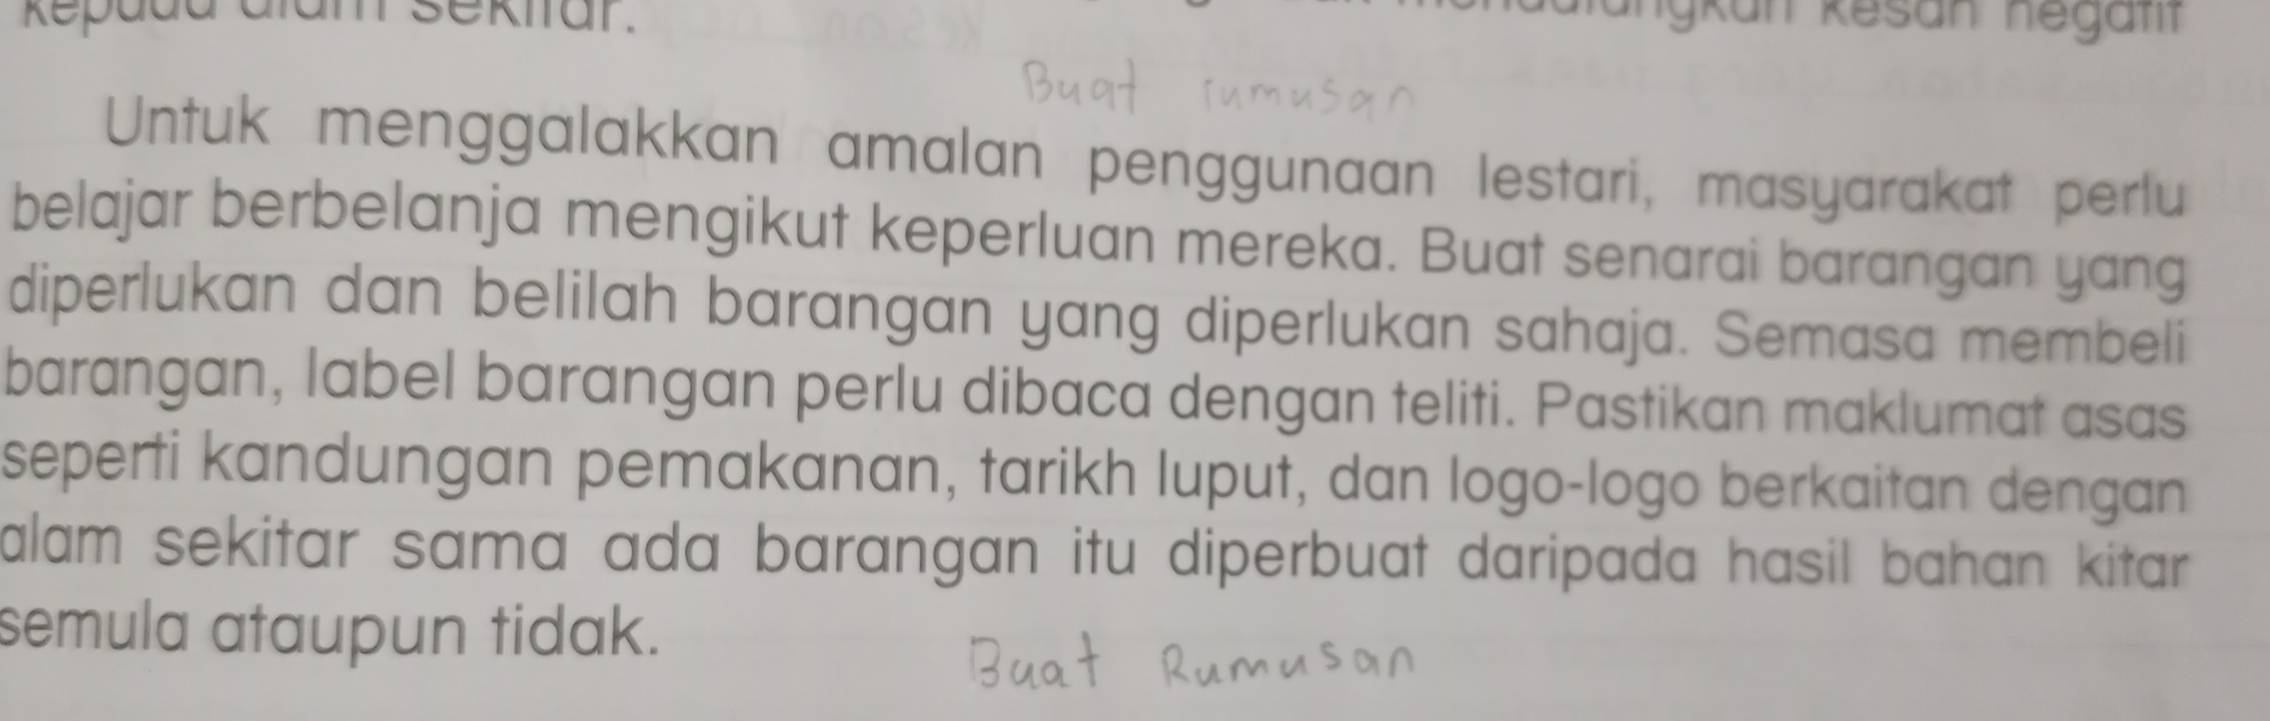 kepada alam sekitar. kesan negatif
Buat rumusan
Untuk menggalakkan amalan penggunaan lestari, masyarakat perlu
belajar berbelanja mengikut keperluan mereka. Buat senarai barangan yang
diperlukan dan belilah barangan yang diperlukan sahaja. Semasa membeli
barangan, label barangan perlu dibaca dengan teliti. Pastikan maklumat asas
seperti kandungan pemakanan, tarikh luput, dan logo-logo berkaitan dengan
alam sekitar sama ada barangan itu diperbuat daripada hasil bahan kitar
semula ataupun tidak.
Buat Rumusan